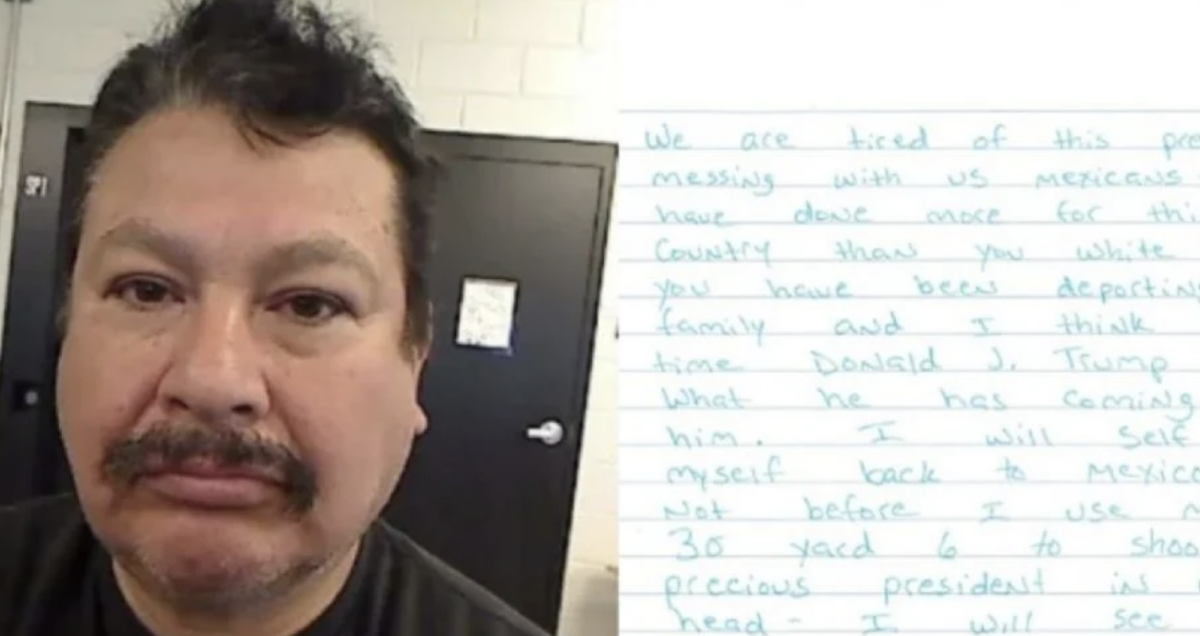 SP1
We are tired of this pre
messing with us mexicans
have done more for thi
Country than you white
you have been deportin
family and I think
time Donald J. Trump
What he has coming
him. I will self
myself back to mexico
Not before I use m
30 yard 6 to shoo
precious president in
head - I will see